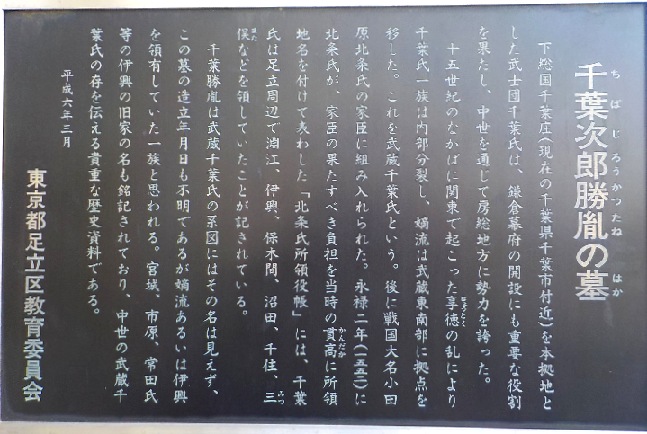 千葉次郎勝胤の墓
ちばじろうかつたね はか
下総国千葉庄(現在の千葉県千葉市付近)を本拠地と
した武士団千葉氏は、鎌倉幕府の開設にも重要な役割
を果たし、中世を通じて房総地方に勢力を誇った。
十五世紀のなかばに関東で起こった享徳の乱により
きょうとく
千葉氏一族は内部分裂し、嫡流は武蔵東南部に拠点を
移した。これを武蔵千葉氏という。後に戦国大名小田
原北条氏の家臣に組み入れられた。永禄二年(一五五二)に
北条氏が、家臣の果たすべき負担を当時の貫高に所領
かんだか
地名を付けて表わした「北条氏所領役帳」には、千葉
氏は足立周辺で渕江、伊興、保木間、沼田、千住、三
みつ
俣などを領していたことが記されている。
また
千葉勝胤は武蔵千葉氏の系図にはその名は見えず、
この墓の造立年月日も不明であるが嫡流あるいは伊興
を領有していた一族と思われる。宮城、市原、常田氏
等の伊興の旧家の名も銘記されており、中世の武蔵千
葉氏の存を伝える貴重な歴史資料である。
平成六年三月
東京都足立区教育委員会